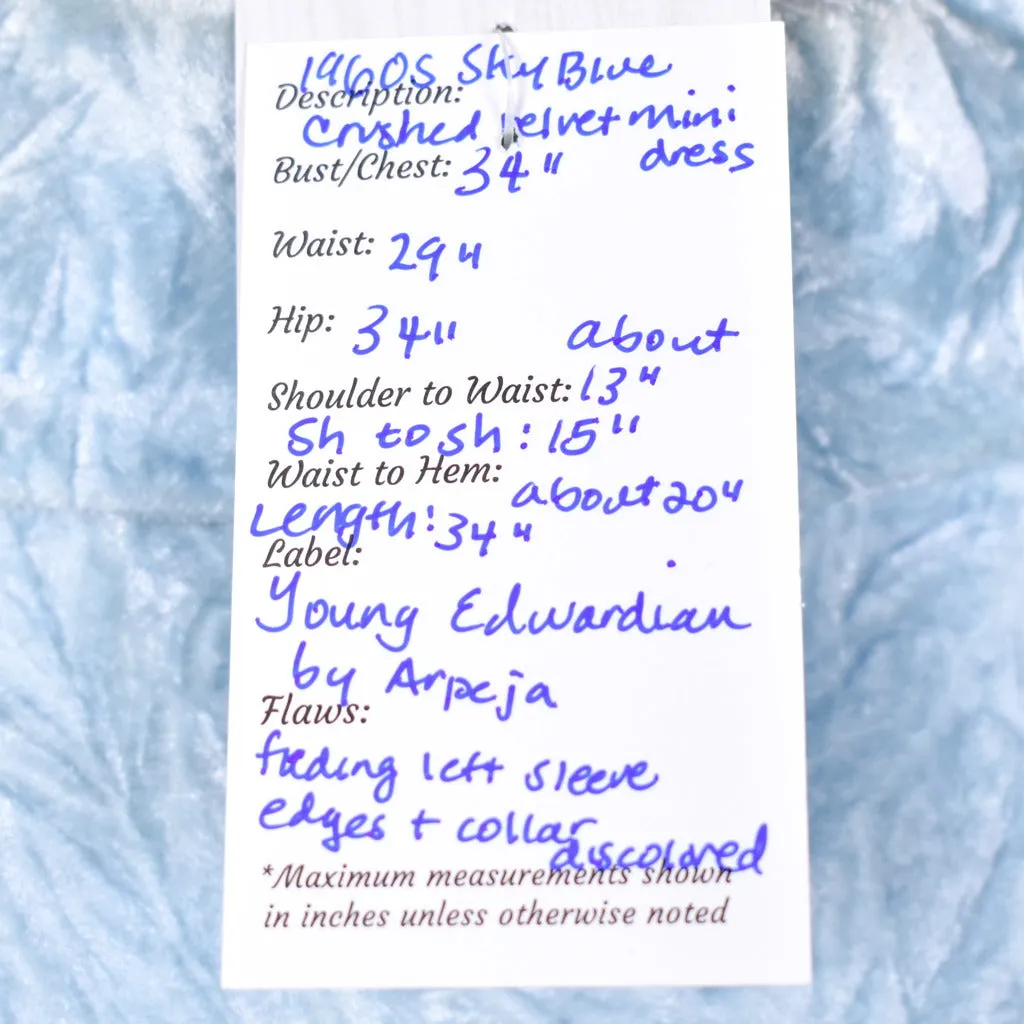 1960s Sky Blue
Description:
Crushed velvet mini
dress
Bust/Chest: 34"
Waist: 29"
Hip: 34"
about
Shoulder to Waist: 13"
Sh to sh: 15"
Waist to Hem: about 20"
Length: 34"
Label:
Young Edwardian
by Arpeja
Flaws:
fading left sleeve
edges + collar
discolored
*Maximum measurements shown
in inches unless otherwise noted